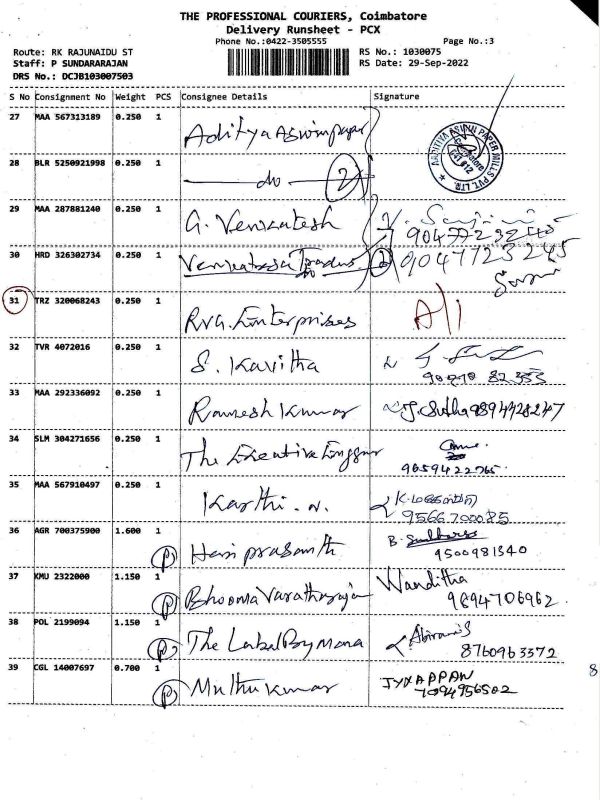 THE PROFESSIONAL COURIERS, Coimbatore
Delivery Runsheet - PCX
Phone No.:0422-3505555
Page No.:3
Route: RK RAJUNAIDU ST
RS No.: 1030075
Staff: P SUNDARARAJAN
RS Date: 29-Sep-2022
DRS No.: DCJB103007503
S No Consignment No Weight PCS Consignee Details Signature
27 MAA 567313189 0.250 1 Aditya Aswin paper
AADITYA ASWIN PAPER MILLS PVT. LTD.
28 BLR 5250921998 0.250 1 do 2
29 MAA 287881240 0.250 1 G. Venkatesh
9047723245
30 HRD 326302734 0.250 1 Venkatesa Traders 2 9047723245
31 TRZ 320068243 0.250 1 RVG. Enterprises A/1
32 TVR 4072016 0.250 1 S. Kavitha
33 MAA 292336092 0.250 1 Ramesh Kumar J. Sutha 9894428247
34 SLM 304271656 0.250 1 The Executive Enggr
9659422765
35 MAA 567910497 0.250 1 Karthi. N.
9566700085
36 AGR 700375900 1.600 1 P Hari prasanth B.
9500981340
37 KMU 2322000 1.150 1 P Bhooma Varatharaja Nanditha
9894706962
38 POL 2199094 1.150 1 P The Label By Mona Abirami
8760963372
39 CGL 14007697 0.700 1 P Muthu kumar JYYAPPAN
7094956502
8